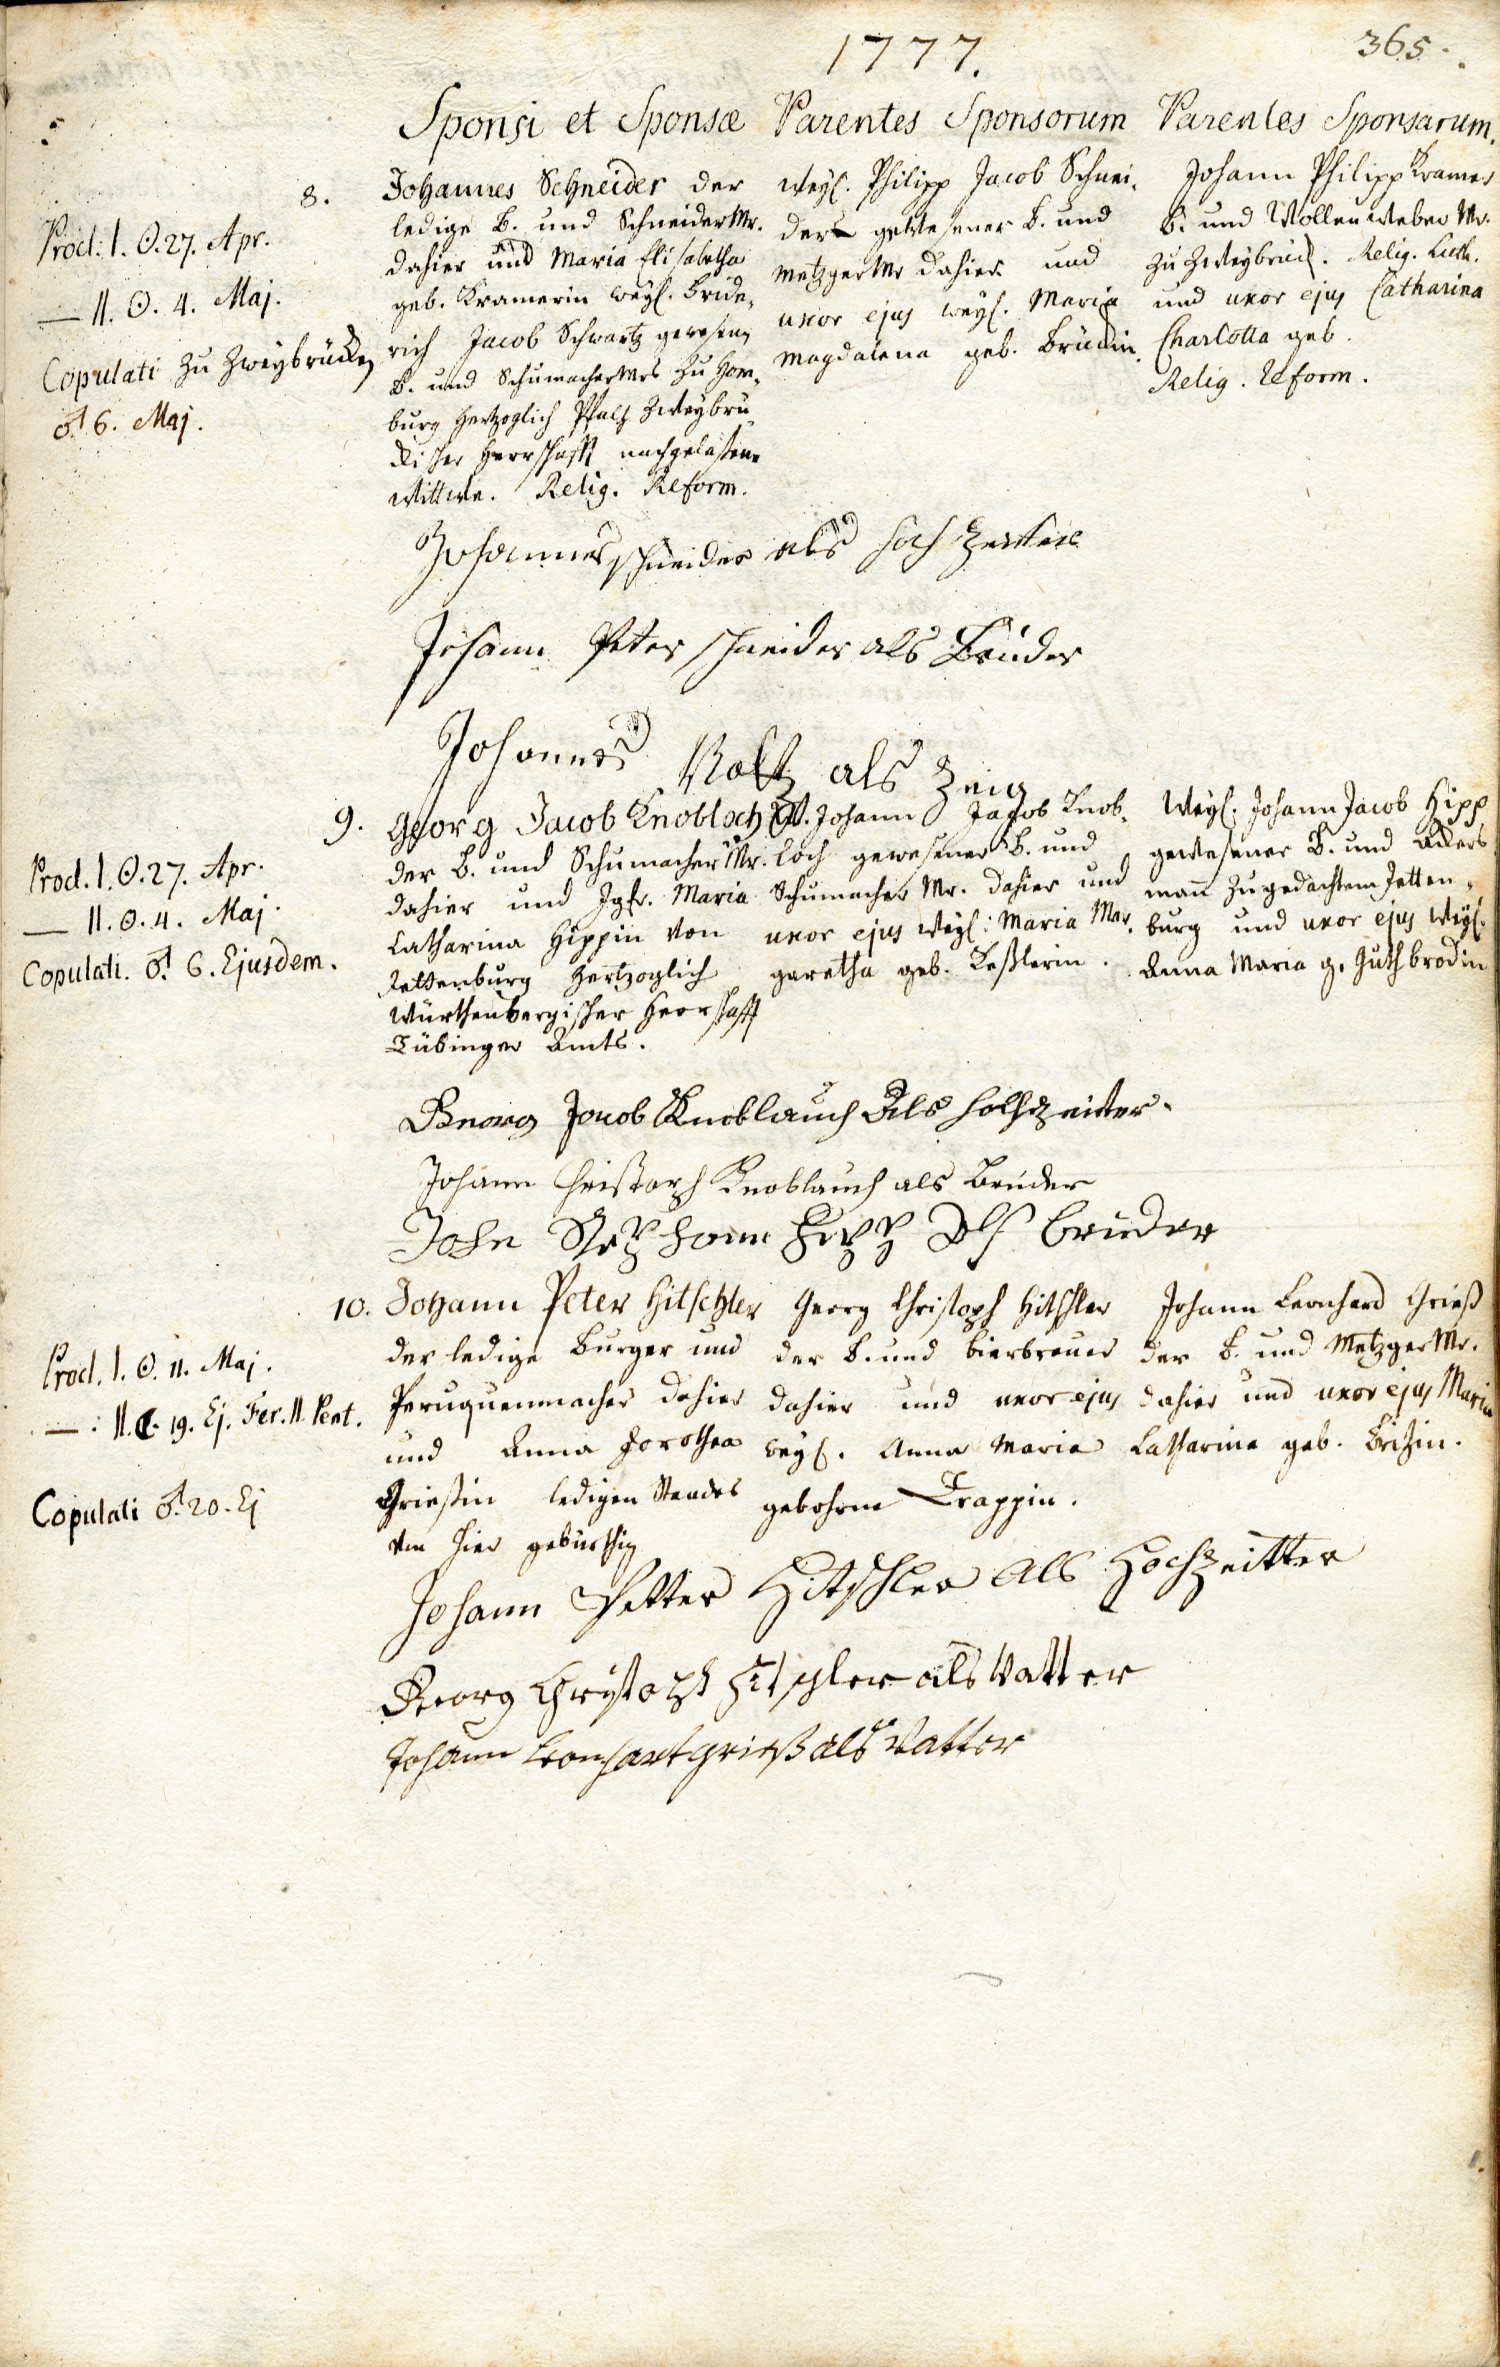 1777.
365.
Sponsi et Sponsæ
Parentes Sponsorum
Parentes Sponsarum.
8.
Procl. I. ☉. 27. Apr.
— II. ☉. 4. Maj.
Copulati zu Zweybrücken
♂ 6. Maj.
Johannes Schneider der
ledige B. und Schneider Mr.
dahier und Maria Elisabetha
geb. Kramerin weyl. Fride-
rich Jacob Schwartz gewesenen
B. und Schumacher Mrs zu Hom-
burg Hertzoglich Pfaltz Zweybrü-
ckischer Herrschafft nachgelaßene
Wittwe. Relig. Reform.
weyl. Philipp Jacob Schnei-
der gewesener B. und
Metzger Mr dahier und
uxor ejus weyl. Maria
Magdalena geb.
Johann Philipp Kramer
B. und Wollenweber Mr.
zu Zweybrück. Relig. Luth.
und uxor ejus Catharina
Charlotta geb.
Relig. Reform.
Johannes schneider als hochzeiter
Johann Peter schneider als Bruder
Johannes Voltz als Zeug
9.
Procl. I. ☉. 27. Apr.
— II. ☉. 4. Maj.
Copulati. ♂ 6. Ejusdem.
Georg Jacob Knobloch
der B. und Schumacher Mr.
dahier und Jgfr. Maria
Catharina Hippin von
Jettenburg Hertzoglich
Würthenbergischer Herrschafft
Tübinger Amts.
W. Johann Jacob Knob-
loch gewesener B. und
Schumacher Mr. dahier und
uxor ejus weyl: Maria Mar-
garetha geb. Keßlerin.
Weyl. Johann Jacob Hipp
gewesener B. und Ackers
mañ zu gedachtem Jetten-
burg und uxor ejus weyl.
Anna Maria g. Guthbrodin
Georg Jacob Knoblauch Als hochzeitter.
Johann Christoph Knoblauch als Bruder
Johann Hipp Als bruder
10.
Procl. I. ☉. 11. Maj.
—. II. ☾. 19. Ej. Fer. II. Pent.
Copulati ♂ 20. Ej
Johann Peter Hitschler
der ledige Burger und
Peruquenmacher dahier
und Anna Dorothea
Grießin ledigen Standes
von hier gebürthig
Georg Christoph Hitschler
der B. und bierbrauer
dahier und uxor ejus
weyl. Anna Maria
gebohrne Trappin.
Johann Leonhard Grieß
der B. und Metzger Mr.
dahier und uxor ejus Maria
Catharina geb.
Johann Petter Hitschler als Hochzeitter
Georg Christoph Hitschler als Vatter
Johann Leonhart grieß als Vatter